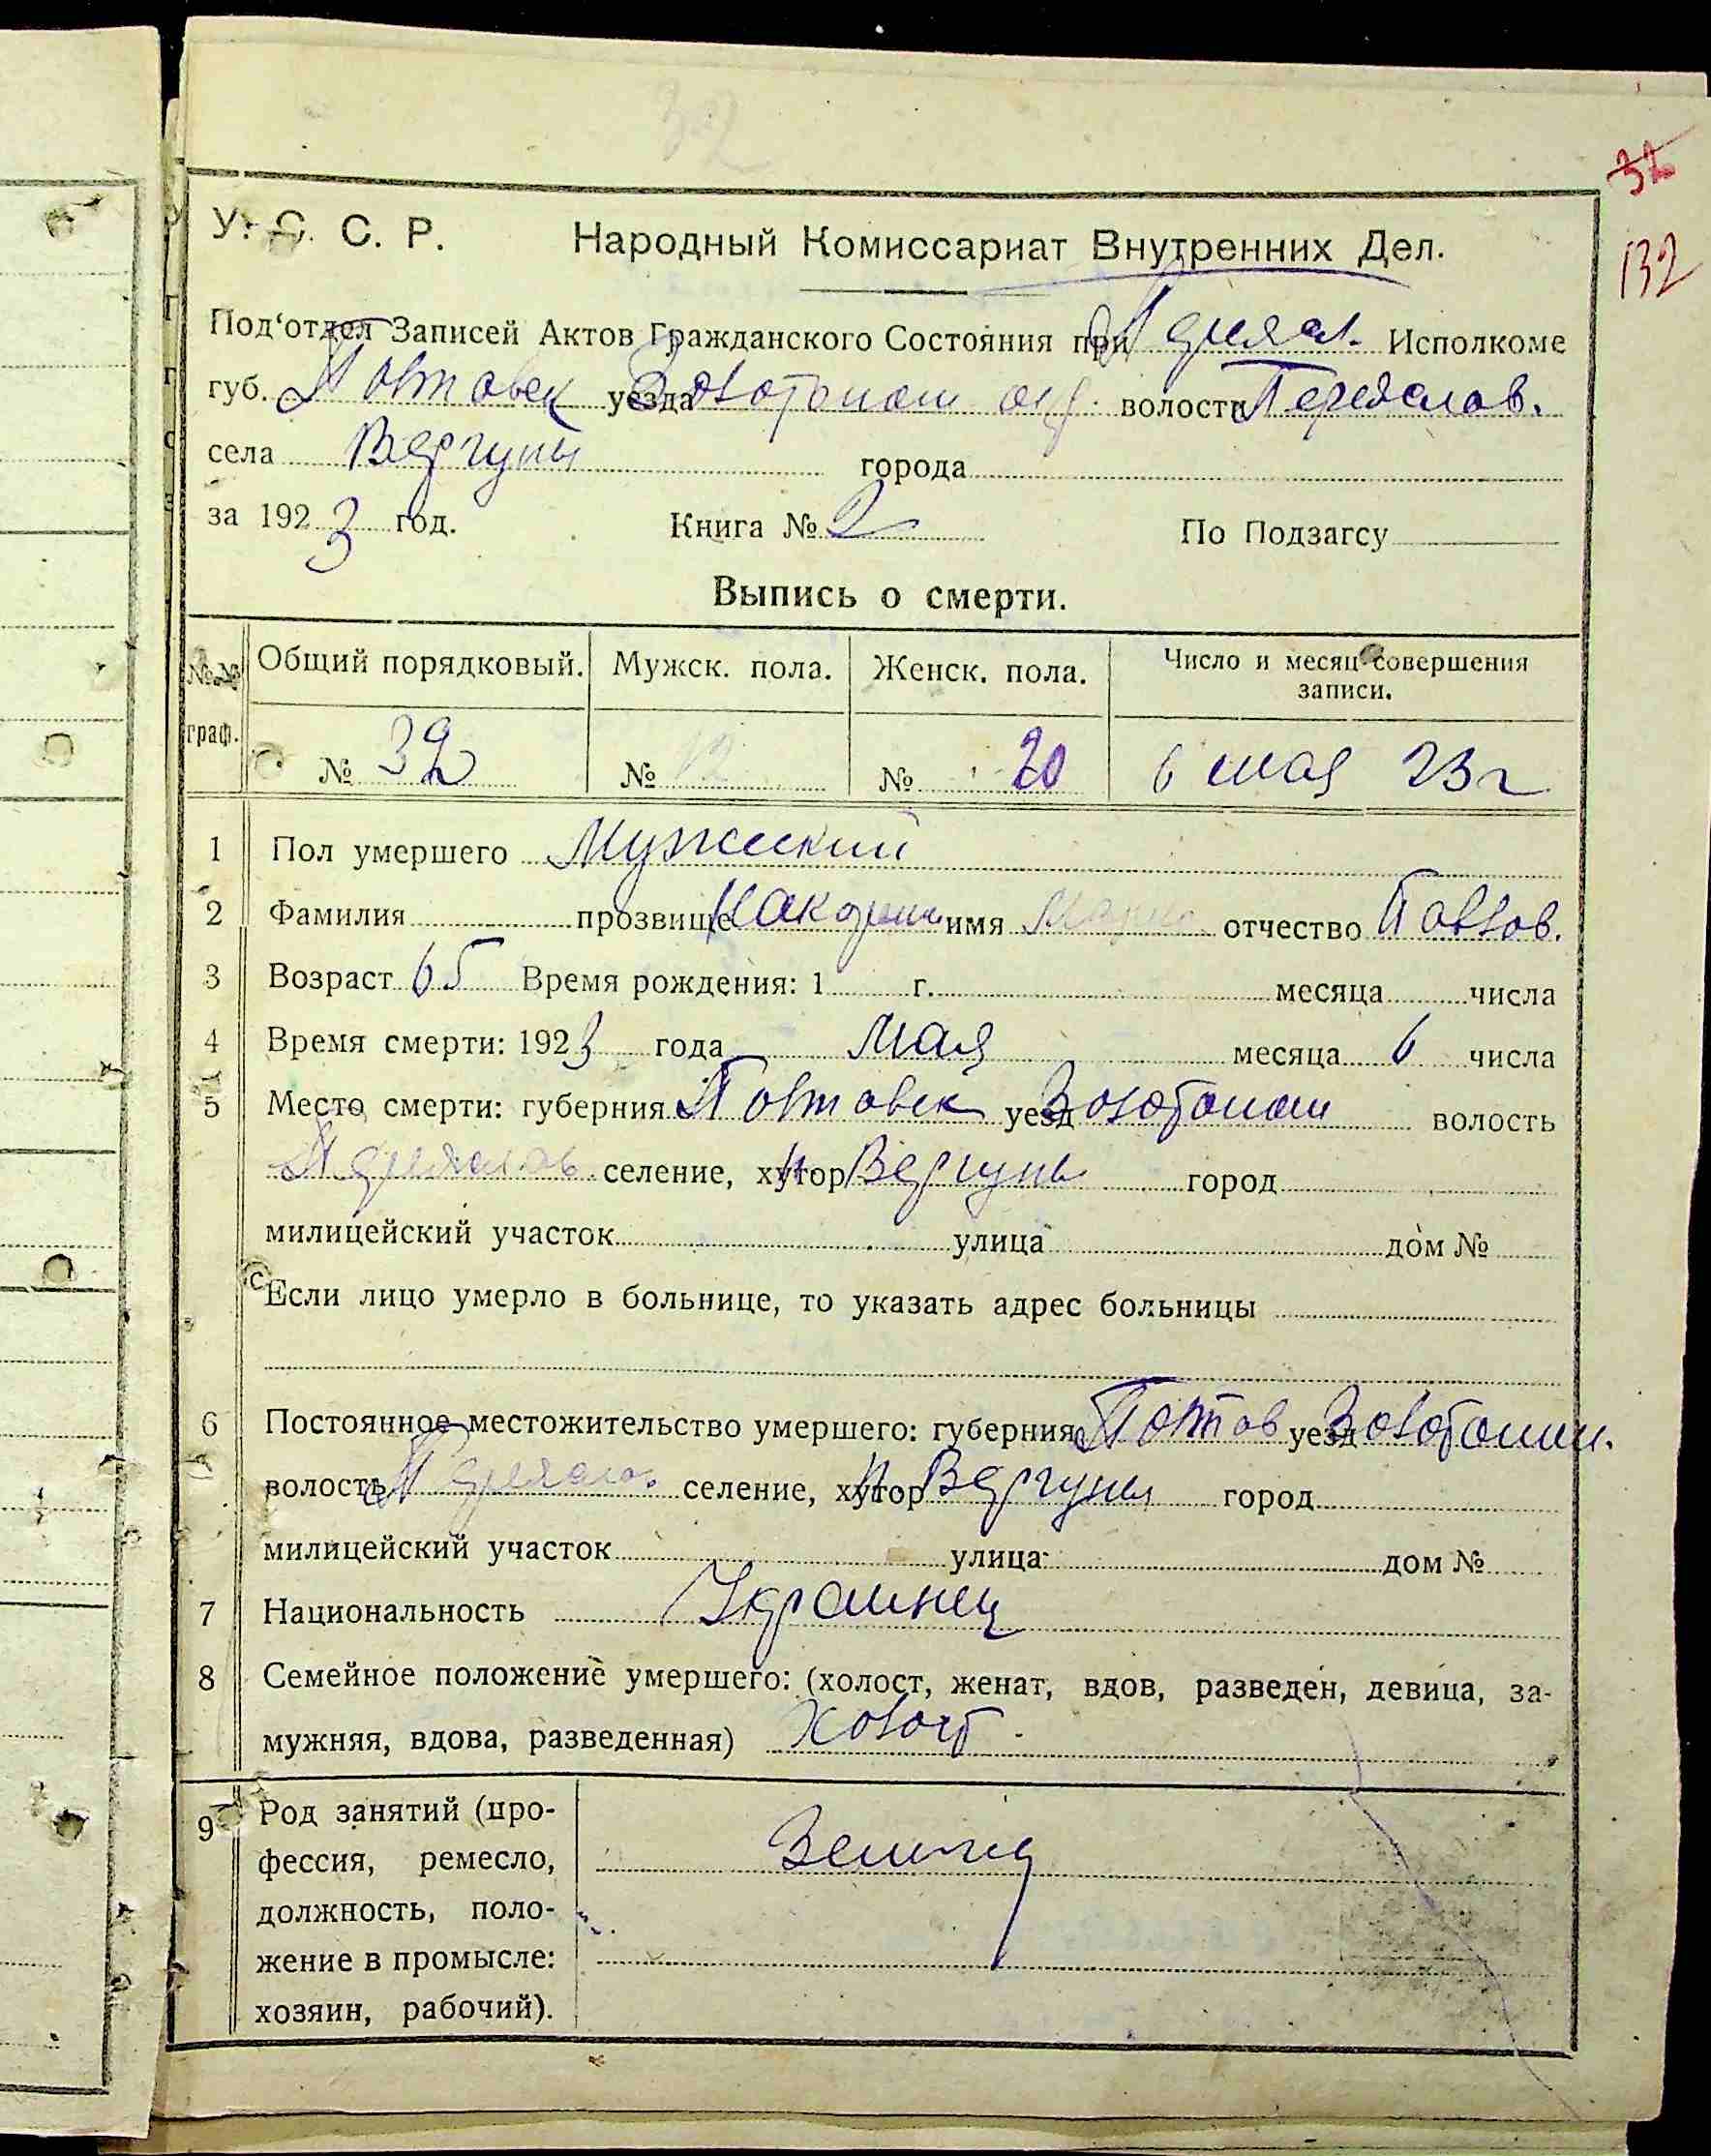 32
32
132
У. С. С. Р. Народный Комиссариат Внутренних Дел.
Под'отдел Записей Актов Гражданского Состояния при Исполкоме
губ. Полтавск уезда Золотонош волости Переяслов.
села Вергуны города
за 1923 год. Книга № 2 По Подзагсу
Выпись о смерти.
№№ граф. Общий порядковый. Мужск. пола. Женск. пола. Число и месяц совершения записи.
№ 32 № 12 № 20 6 мая 23 г
1 Пол умершего Мужеский
2 Фамилия прозвище имя отчество Павлов.
3 Возраст 65 Время рождения: 1 г. месяца числа
4 Время смерти: 1923 года мая месяца 6 числа
5 Место смерти: губерния Полтавск уезд Золотонош волость
Переяслов селение, хутор Вергуны город
милицейский участок улица дом №
Если лицо умерло в больнице, то указать адрес больницы
6 Постоянное местожительство умершего: губерния Полтав уезд Золотонош.
волость Переясло. селение, хутор Вергуны город
милицейский участок улица дом №
7 Национальность Украинец
8 Семейное положение умершего: (холост, женат, вдов, разведен, девица, за-
мужняя, вдова, разведенная) Холост
9 Род занятий (про-
фессия, ремесло,
должность, поло-
жение в промысле:
хозяин, рабочий).